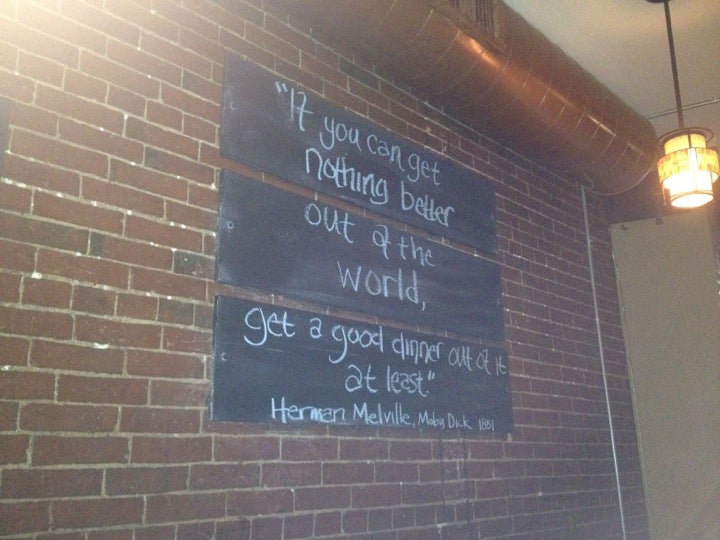 "If you can get
nothing better
out of the
world,
get a good dinner out of it
at least"
Herman Melville, Moby Dick 1851